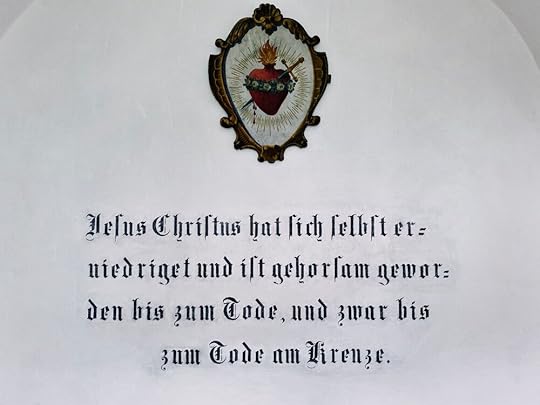 Jeſus Chriſtus hat ſich ſelbſt er⸗
niedriget und iſt gehorſam gewor⸗
den bis zum Tode, und zwar bis
zum Tode am Kreuze.